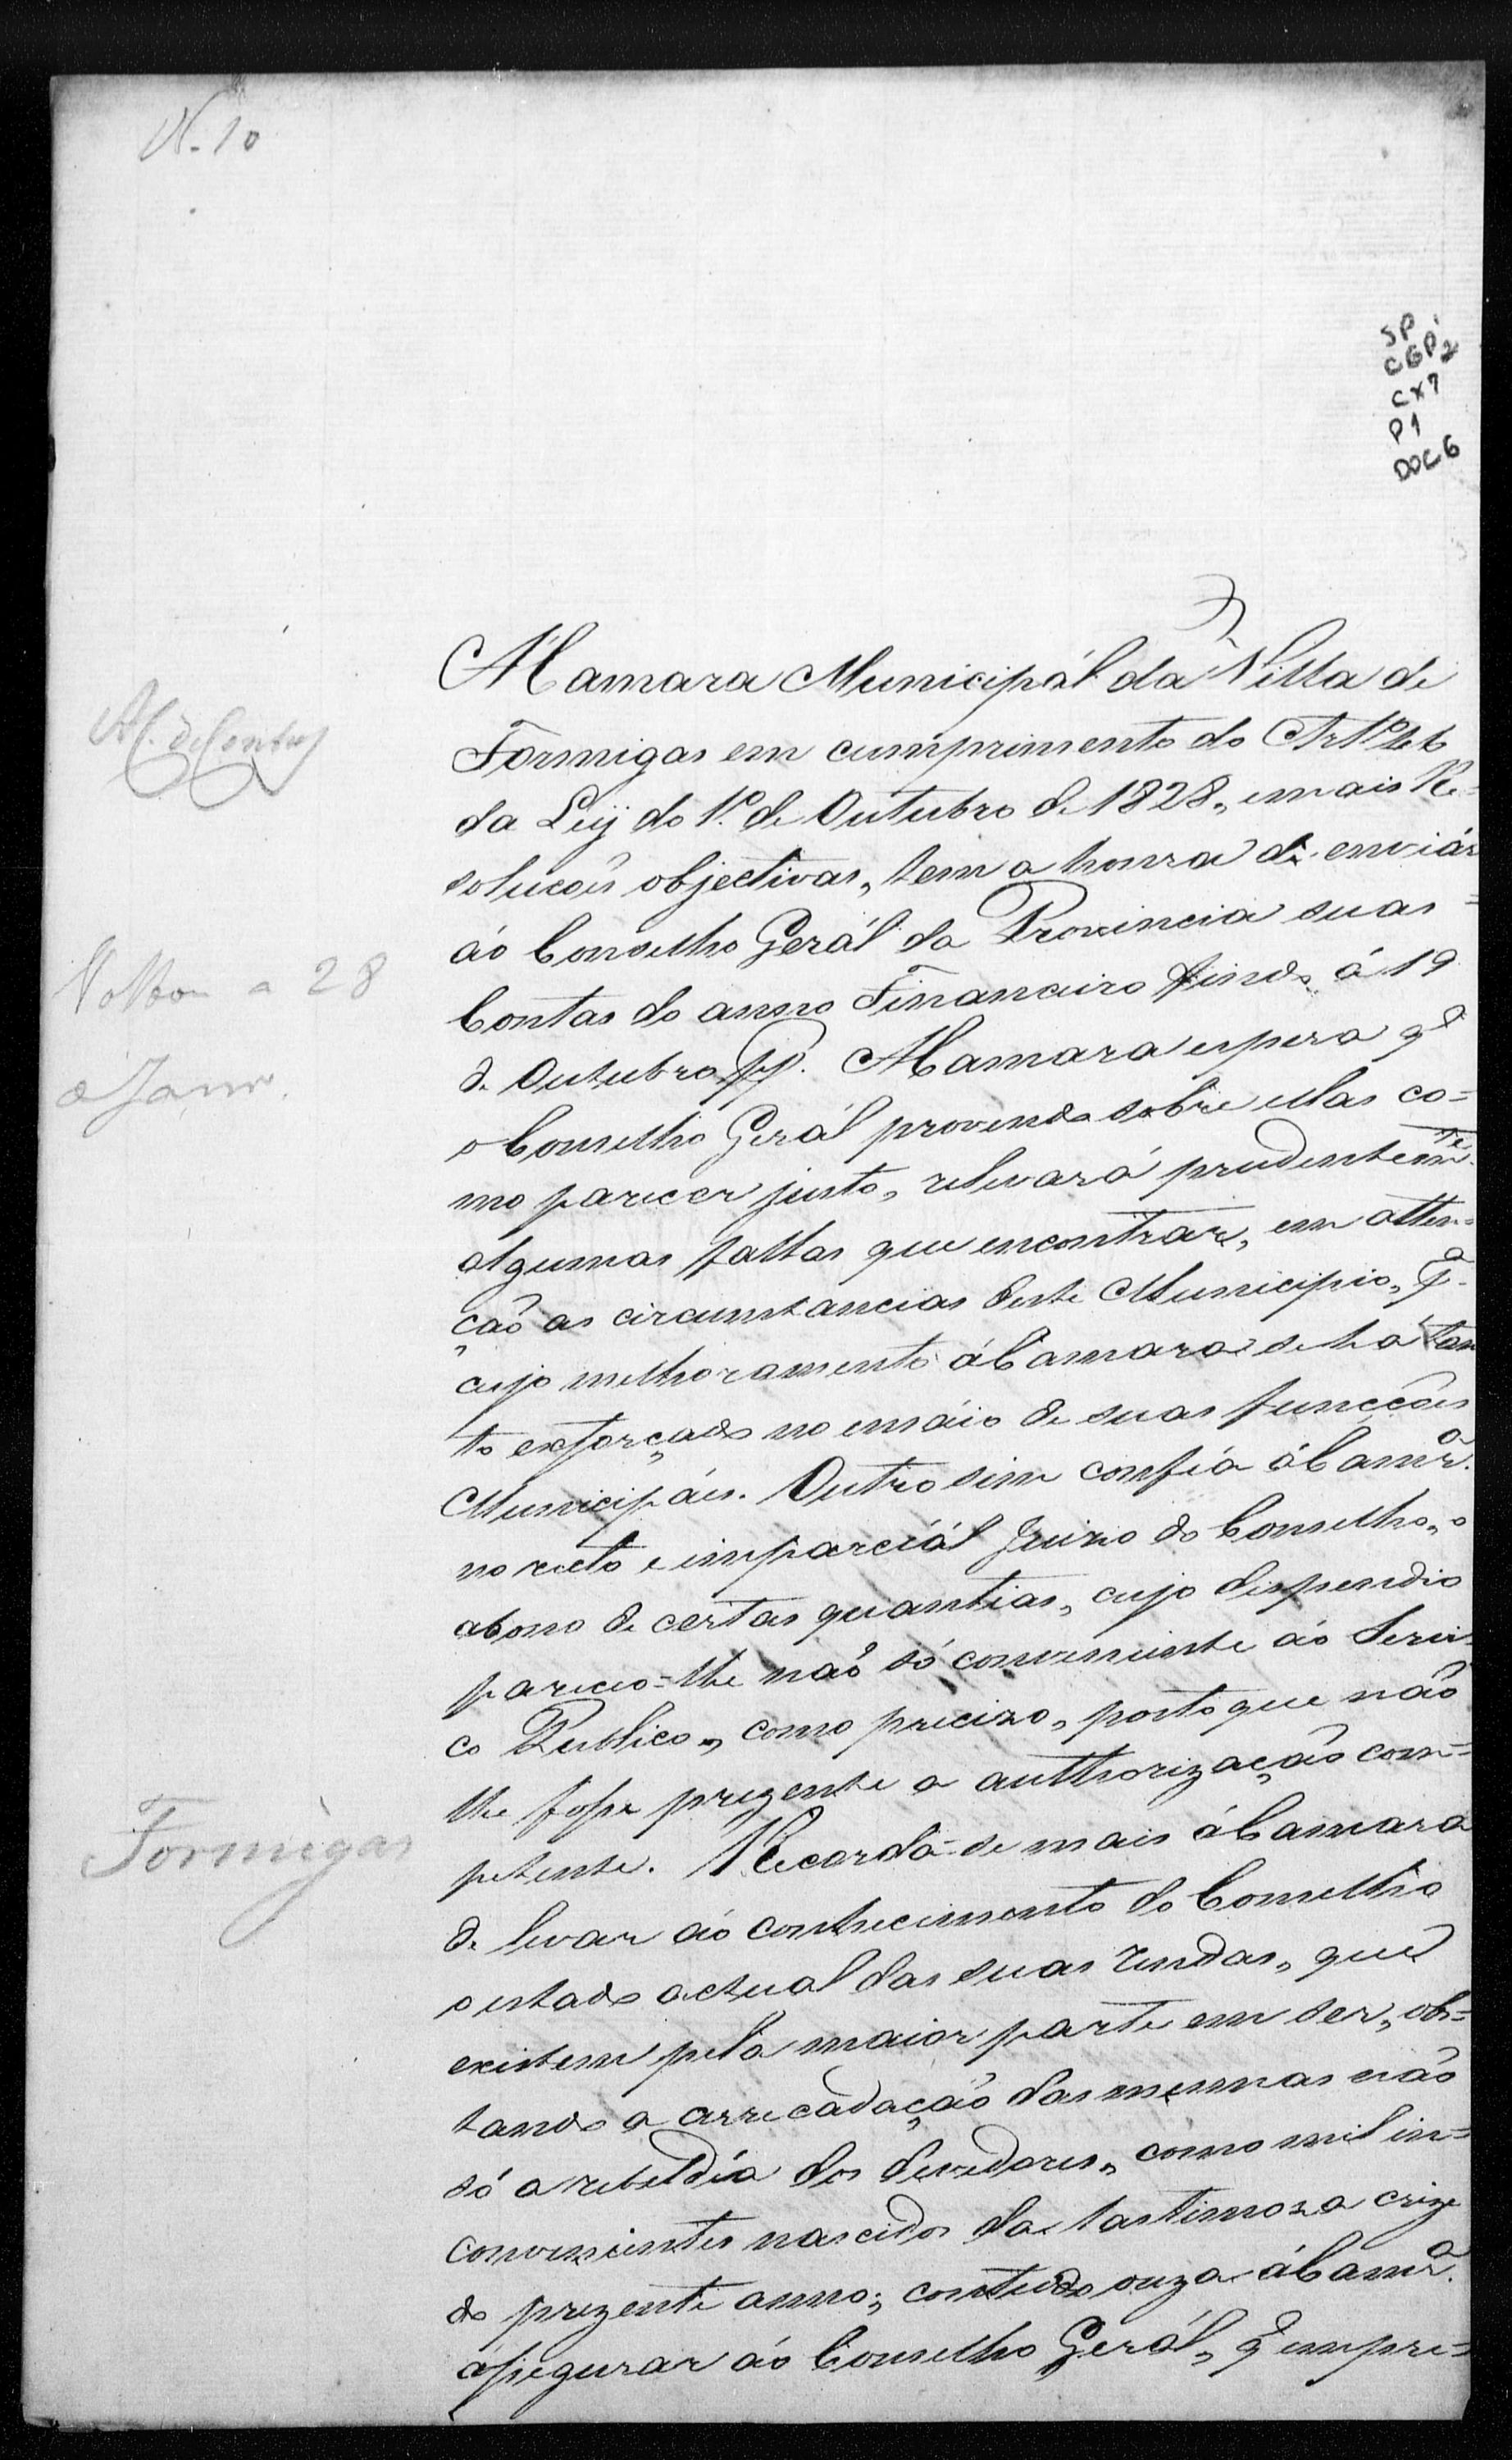 N. 10
SP
CGP 2
CX 7
P1
DOC 6
A Camara Municipál da Villa de
Formigas em cumprimento do Art.º 46
da Leÿ do 1.º de Outubro de 1828, e mais Re=
soluçoẽs objectivas, tem a honra de enviár
áo Conselho Gerál da Provincia suas
Contas do anno Financeiro findo á 19
de Outubro pp. A Camara espera q̃
o Conselho Gerál provendo sobre ellas co=
mo parecer justo, relevará prudentem.te
algumas faltas que encontrar, em atten=
ção as circunstancias deste Municipio, p.ª
cujo melhoramento á Camara se há tan
to exforçado no ensáio de suas funcçoẽs
Municipáes. Outro sim confia á Camr.ª
no recto e imparciál Juizo do Conselho, o
abono de certas quantias, cujo dispendio
pareceo=lhe não só conveniente áo Servi
co Publico, como precizo, posto que não
lhe fosse prezente a authorização com=
petente. Recorda-se mais á Camara
de levar áo conhecimento do Conselho
o estado actual das suas rendas, que
existem pela maior parte em ser, obs=
tando a arrecadação das mesmas não
só a rebeldía dos devedores, como mil in=
convenientes nascidos da lastimoza crize
do prezente anno; contudo ouza á Camr.ª
assegurar áo Conselho Gerál, q̃ empre=
A C. de Contas
Voltou a 28
de Janr.
Formigas